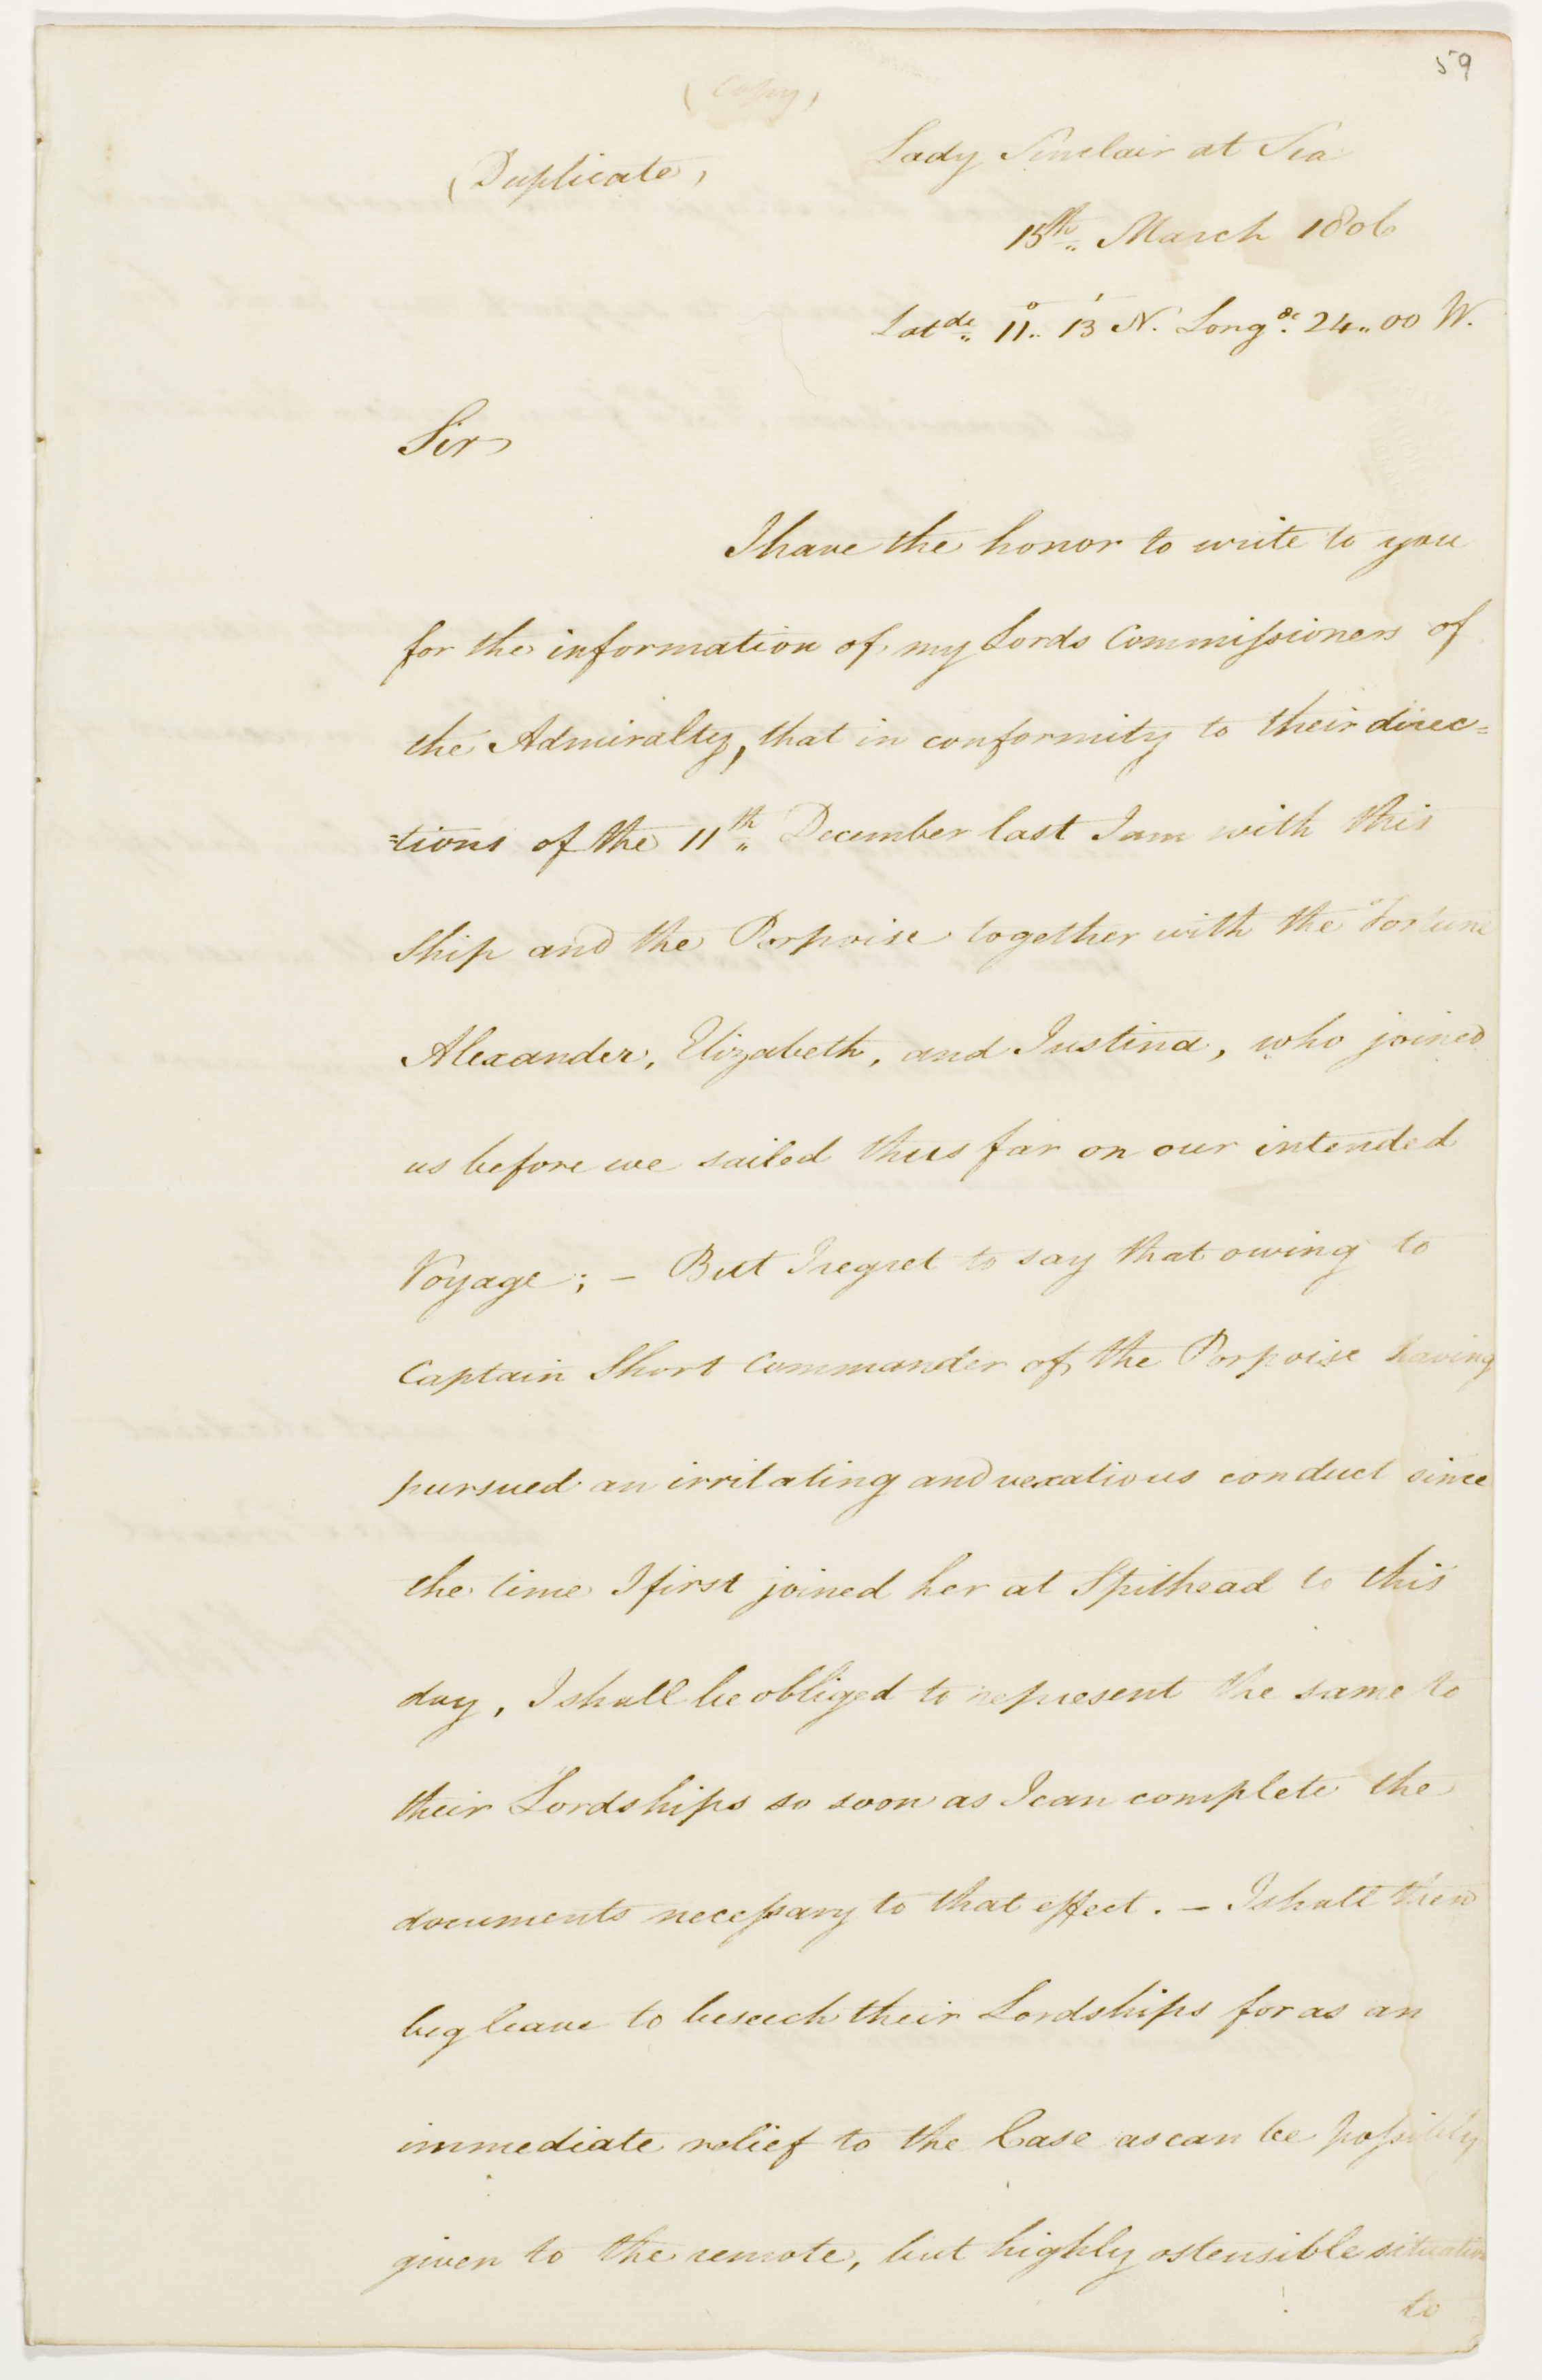 59
(Copy)
(Duplicate)
Lady Sinclair at Sea
15th March 1806
Latde 11° 13' N. Longde 24 00 W.
Sir
I have the honor to write to you
for the information of my Lords Commissioners of
the Admiralty, that in conformity to their direc=
=tions of the 11th December last I am with this
Ship and the Porpoise together with the Fortune
Alexander, Elizabeth, and Justina, who joined
us before we sailed thus far on our intended
Voyage; – But I regret to say that owing to
Captain Short Commander of the Porpoise having
pursued an irritating and vexatious conduct since
the time I first joined her at Spithead to this
day, I shall be obliged to represent the same to
their Lordships so soon as I can complete the
documents necessary to that effect. – I shall then
beg leave to beseech their Lordships for as an
immediate relief to the Case as can be possibly
given to the remote, but highly ostensible situation
to